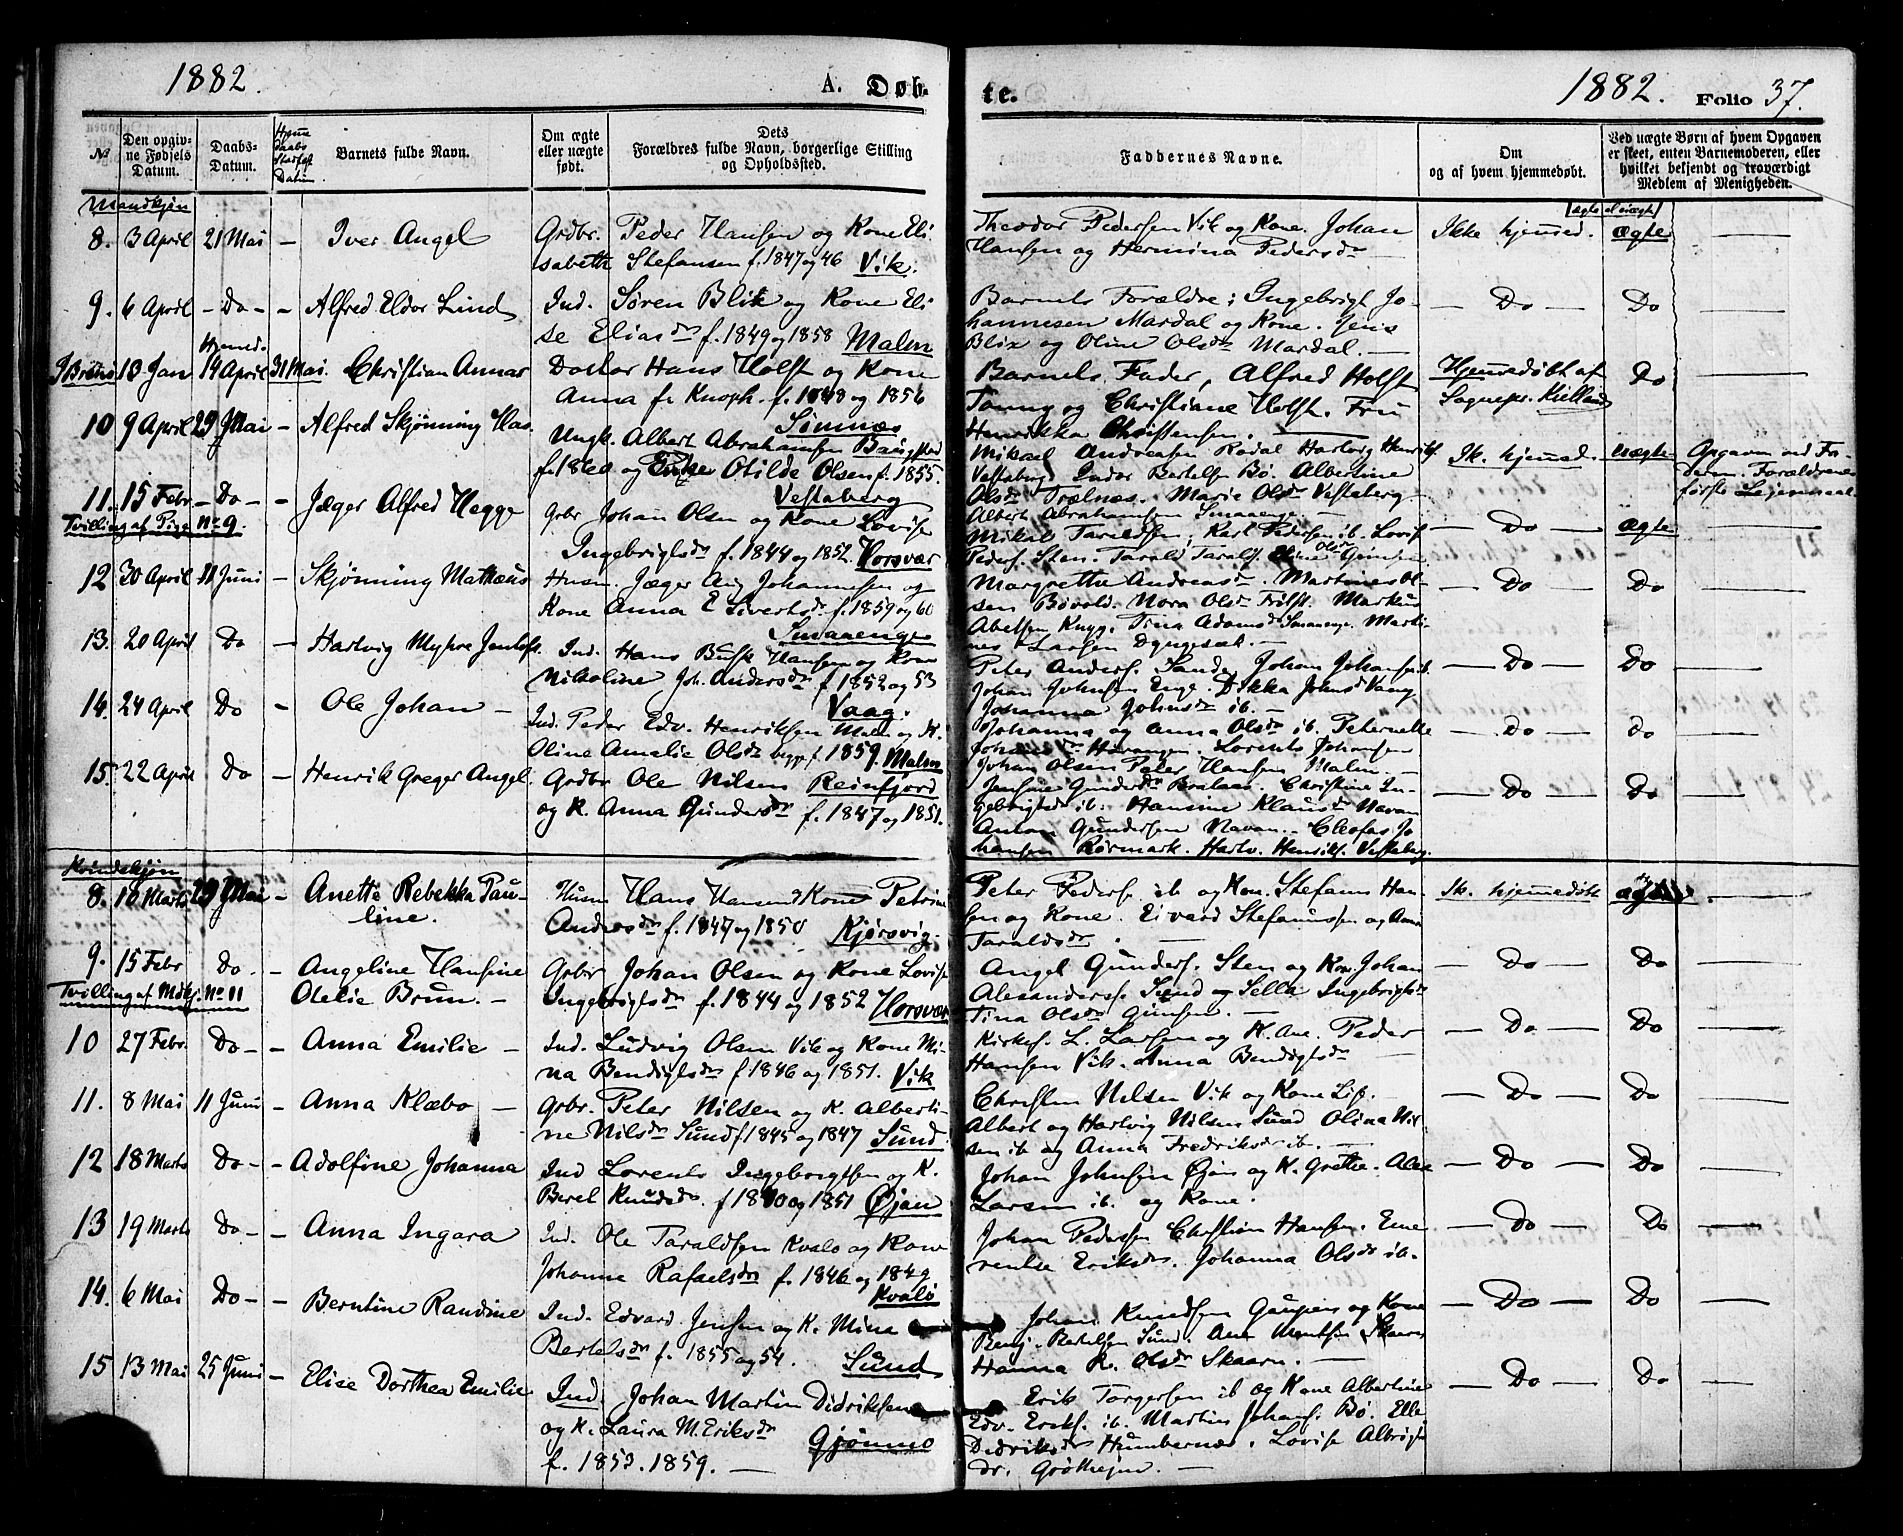 1882.
A. Døb-
te.
1882. Folio 37.
№
Den opgiv-
ne Fødsels
Datum.
Daabs-
Datum.
Hjeme
daabs
Stadfæst
Datum
Barnets fulde Navn.
Om ægte
eller uægte
født.
Dets
Forældres fulde Navn, borgerlige Stilling
og Opholdssted.
Faddernes Navne.
Om
og af hvem hjemmedøbt.
Ved uægte Børn af hvem Opgaven
er skeet, enten Barnemoderen, eller
hvilket bekjendt og troværdigt
Medlem af Menigheden.
Mandkjøn
ægte el uægte
8. 3 April 21 Mai — Iver Angel Grdbr. Peder Hansen og Kone Eli
sabeth Stefansen f. 1847 og 46 Vik.
Theodor Pedersen Vik og Kone. Johan
Hansen og Hermina Pedersdr —
Ikke hjemmed. ægte —
9. 6 April — Do — — Alfred Eldor Lund Ind. Søren Blix og Kone Eli
se Eliasdr f. 1849 og 1858 Malm
Barnets Forældre; Ingebrigt Jo-
hannesen Mardal og Kone. Jens
Blix og Oline Olsdr Mardal. —
— Do — Do —
Hjemmed.
I Brønø 13 Jan 14 April 31 Mai. Christian Annar Doctor Hans Holst og Kone
Anna f. Knoph. f. 1848 og 1856
Sømnæs
Barnets Fader, Alfred Holst
Tanny og Christiane Holst. Fru
Henrikka Christensen. —
Hjemmedøbt af
Sognepr. Kielland
Do —
10 9 April 29 Mai — Alfred Skjønning Has
Ungk. Albert Abrahamsen Baugstad
f. 1860 og Enke Otilde Olsen f. 1855.
Vestaberg
Mikael Andreasen Rodal Hartvig Henriks.
Vestaberg Indor Bertels. Bø. Albertine
Olsdr Trælnes. Marie Olsdr Vestaberg. —
Albert Abrahamsen Smaaenge. —
Ik. hjemmed. uægte
Opgaven ved Fa-
deren. Forældrenes
første Leiermaal
11. 15 Febr — Do — — Jæger Alfred Hegge
Tvilling af Pige No 9.
Grbr Johan Olsen og Kone Lovise
Ingebrigtsdr f. 1844 og 1852. Horsvær
Mikal Taraldsen, Karl Pedersen ib. Lovise
Peders. Sten. Tarald Taralds. Oline Olsdr Gimsen
— Do — ægte —
12 30 April 11 Juni — Skjønning Mathæus
Husm. Jæger Aug Johannesen og
Kone Anna E Sivertsdr f. 1859 og 60
Smaaenge
Margrethe Andreasdr. Martines Ol-
sen Bøvold. Nora Olsdr Tilst. Markus
Abelsen Kngg. Tina Adamsdr Smaaenge. Marti-
nes Larsen Dyngesæt. —
— Do — Do —
13. 20 April Do — Hartvig Myhre Jentoft
Ind. Hans Busk Hansen og Kone
Nikoline Joh. Andersdr f 1852 og 53
Vaag.
Peter Anders. Sande, Johan Johansen ib.
Johan Johnsen Enge. Dikka Johnsdr Vaag
Johanna Johnsdr ib. —
— Do — Do —
14. 24 April Do — Ole Johan —
Ind. Peder Edv. Henriksen Malm og K.
Oline Amalie Olsdr begge f. 1859. Malm
Johanna og Anna Olsdr ib. Peternelle
Johansdr Horangen. Lorents Johansen
Johan Olsen Peter Hansen Malm. —
— Do — Do —
15. 22 April Do — Henrik Greger Angel.
Grdbr Ole Nilsen Reinfjord
og K. Anna Gundersdr f. 1847 og 1851.
Jensine Gundersdr Bralaas. Christine In-
gebrigtsdr ib. Hansine Klausdr Navan
Anton Gundersen Navan. — Cleofas Jo
hansen Rørmark. Hartv. Henriks. Vestaberg.
— Do — Do —
Kvindekjøn
8. 10 Marts 29 Mai — Anette Rebekka Pau-
line.
Husm Hans Hansen & Kone Petrine
Andreasdr f. 1847 og 1850 Kjørsvig.
Peter Peders. ib og Kone. Stefanus Han-
sen og Kone. Eivard Stefanussen og Anna
Taraldsdr. —
Ik. hjemmedøbt ægte —
9. 15 Febr Do. — Angeline Hansine
Tvilling af Mdkj. No 11 Otelie Brun. —
Grbr Johan Olsen og Kone Lovise
Ingebrigtsdr f. 1844 og 1852 Horsvær
Angel Gunders. Sten og Kone Johan
Alexanders. Sund og Sella Ingebrigtsdr
Tina Olsdr Gimsen. —
— Do — Do —
10 27 Febr. Do — — Anna Emilie —
Ind. Ludvig Olsen Vik og Kone Mi-
na Bendigtsdr f 1846 og 1851. Vik
Kirkes. L. Larsen og K. Ane. Peder
Hansen Vik. Anna Bendigtsdr —
— Do — Do —
11. 8 Mai 11 Juni — Anna Klæbo —
Grbr. Peter Nilsen og K. Alberti-
ne Nilsdr Sund f. 1845 og 1847 Sund.
Christen Nilsen Vik og Kone Lis. —
Albert og Hartvig Nilsen Sund Olina Nil
sen ib og Anna Fredriksdr ib. —
— Do — Do —
12 18 Marts Do — — Adolfine Johanna
Ind Lorents Ingeborgtsen og K.
Beret Knudsdr. f 1840 og 1851 Øjan
Johan Johnsen Øjan og K. Grethe. Ale
Larsen ib. og Kone.
— Do — Do —
13 19 Marts Do — — Anna Ingara
Ind. Ole Taraldsen Kvalø og Kone
Johanne Rafaelsdr f. 1846 og 1849
Kvalø
Johan Pedersen Christian Hansen. Eme
rentse Eriksdr. Johanna Olsdr ib.
— Do — Do —
14. 6 Mai Do — — Berntine Randine
Ind. Edvard Jensen og K. Mina
Bertelsdr f. 1855 og 54. Sund
Johan Knudsen Gaupen og Kone
Benj. Bertelsen Sund. Ane Skaaren
Hanna R. Olsdr Skaarn. —
— Do — Do —
15 13 Mai 25 Juni — Elise Dorthea Emilie
Ind Johan Martin Didriksen
og K. Laura M. Eriksdr
f. 1853. 1859. — Gjønnø
Erik Torgersen ib og Kone Albertine
Edv. Eriks. ib. Martin Johans. Bø. Elle
Didriksdr Humbernes. Lovise Albrigts
dr. Grøthejen. —
— Do — Do —